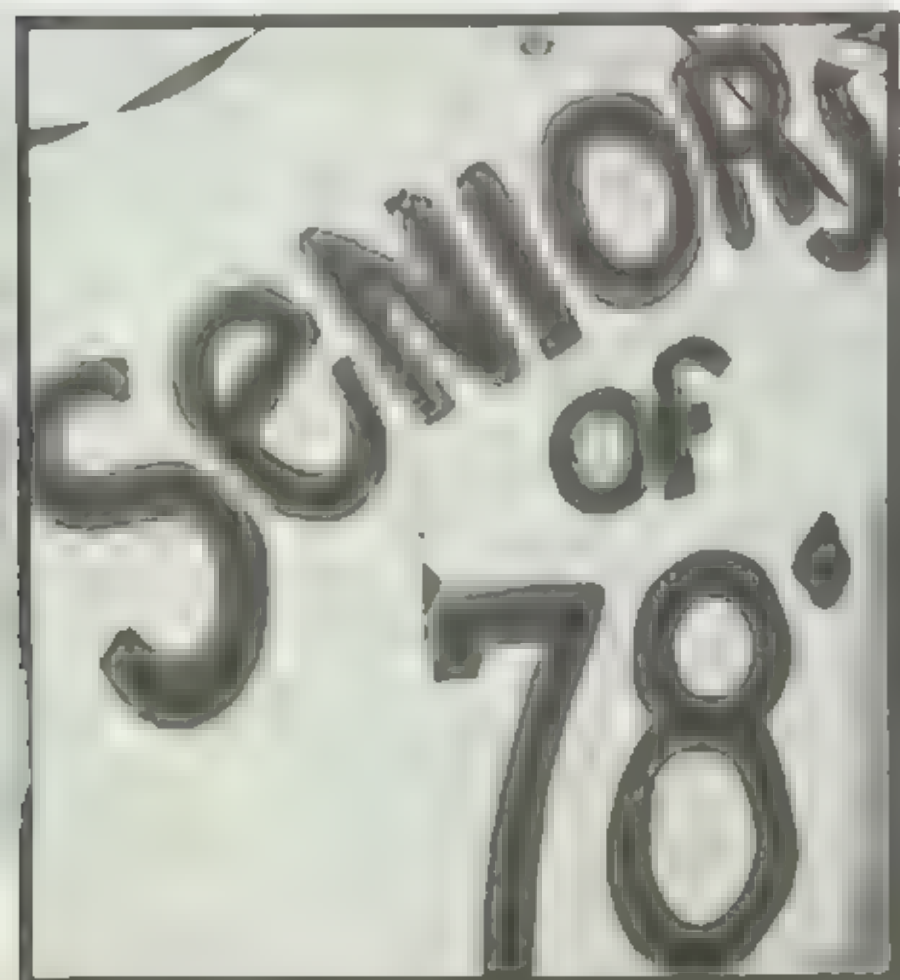 SeNIORS
OF
78'